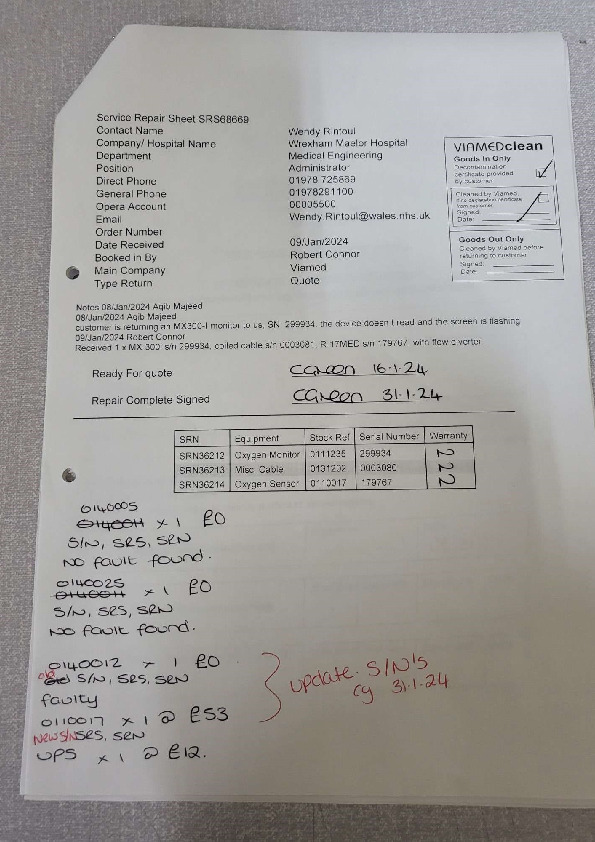 Service Repair Sheet SRS68669
Contact Name Wendy Rintoul
Company/ Hospital Name Wrexham Maelor Hospital
Department Medical Engineering
Position Administrator
Direct Phone 01978 725889
General Phone 01978291100
Opera Account 00005500
Email Wendy.Rintoul@wales.nhs.uk
Order Number
Date Received 09/Jan/2024
Booked in By Robert Connor
Main Company Viamed
Type Return Quote
VIAMEDclean
Goods In Only
Decontamination
certificate provided
by customer
Cleaned by Viamed
Signed:
Date:
Goods Out Only
Cleaned by Viamed before
returning to customer
Signed:
Date:
Notes 08/Jan/2024 Aqib Majeed
08/Jan/2024 Aqib Majeed
customer is returning an MX300-I monitor to us, SN: 299934, the device doesn't read and the screen is flashing
09/Jan/2024 Robert Connor
Received 1 x MX 300 s/n 299934, coiled cable s/n 0003081, R-17MED s/n 179767, with flow diverter
Ready For quote CGreen 16.1.24
Repair Complete Signed CGreen 31.1.24
SRN Equipment Stock Ref Serial Number Warranty
SRN36212 Oxygen Monitor 0111235 299934 N
SRN36213 Misc. Cable 0131202 0003080 N
SRN36214 Oxygen Sensor 0110017 179767 N
0140005
0140011 x 1 £0
S/N, SRS, SRN
NO fault found.
0140025
0140011 x 1 £0
S/N, SRS, SRN
NO fault found.
0140012 x 1 £0
old S/N, SRS, SRN
faulty
0110017 x 1 @ £53
New S/N SRS, SRN
UPS x 1 @ £12.
update S/N's
cg 31.1.24